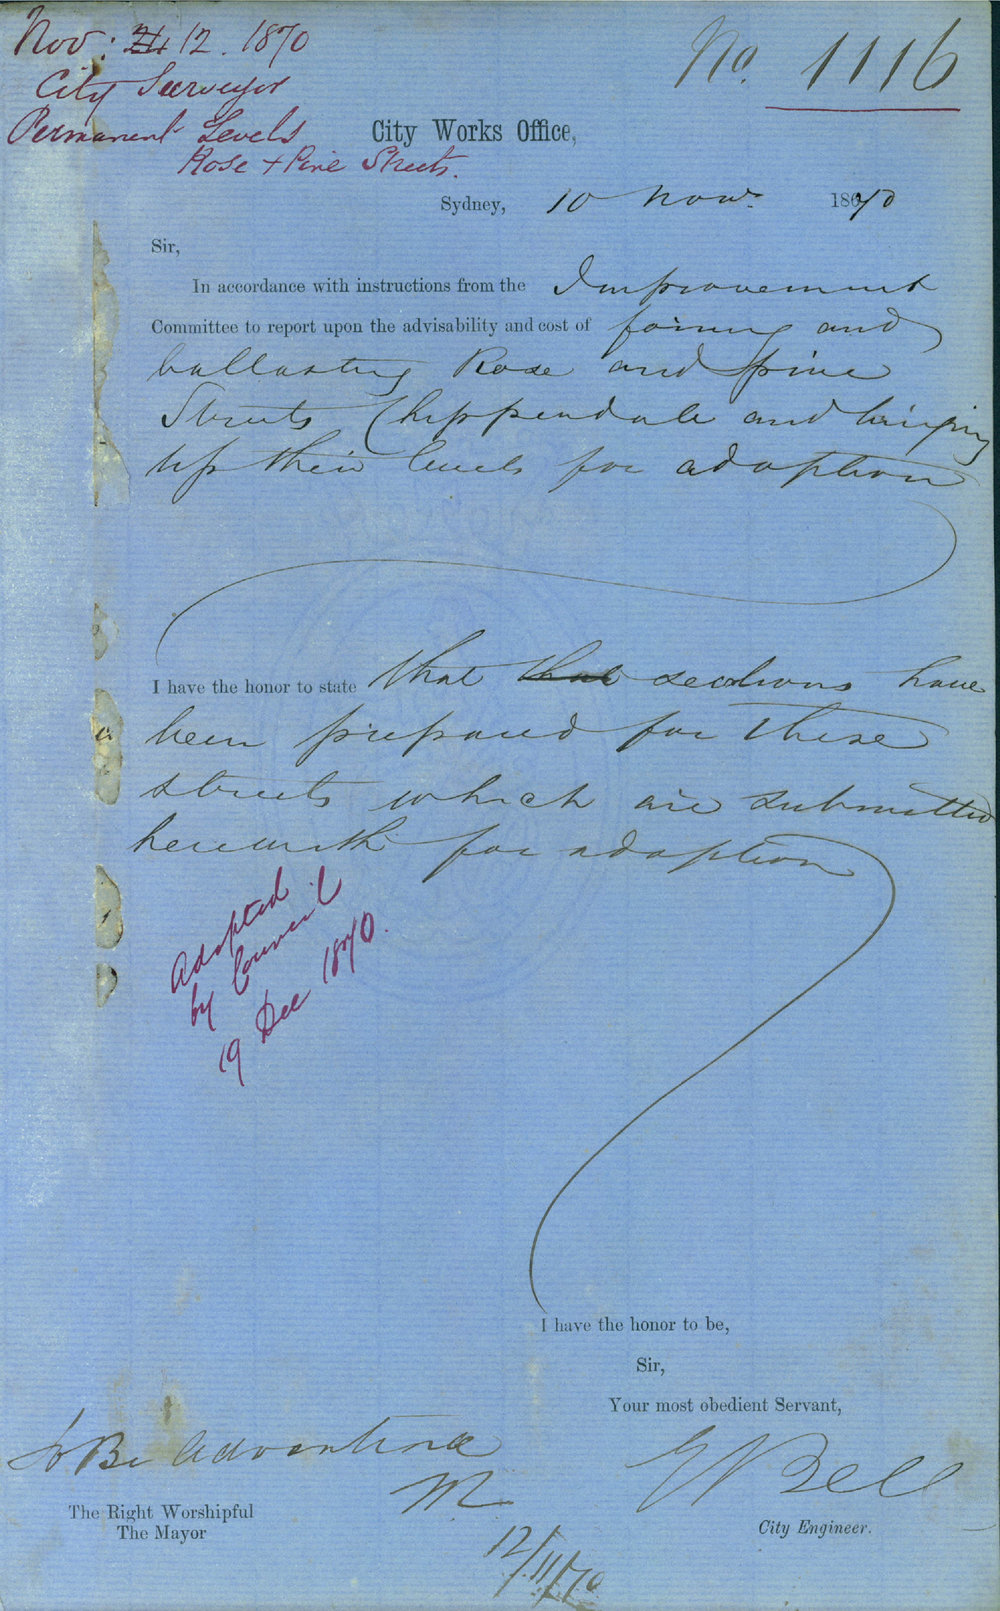 Nov: 12. 1870
City Surveyor
Permanent Levels
Rose + Pine Streets.
No. 1116
City Works Office,
Sydney, 10 Novr. 1870
Sir,
In accordance with instructions from the Improvement
Committee to report upon the advisability and cost of forming and
ballasting Rose and Pine
Streets Chippendale and bringing
up their levels for adoption
I have the honor to state that that sections have
been prepared for these
streets which are submitted
herewith for adoption
Adopted
by Council
19 Dec 1870.
I have the honor to be,
Sir,
Your most obedient Servant,
To Be Advertised
M
E Bell
The Right Worshipful
The Mayor
City Engineer.
12/11/70